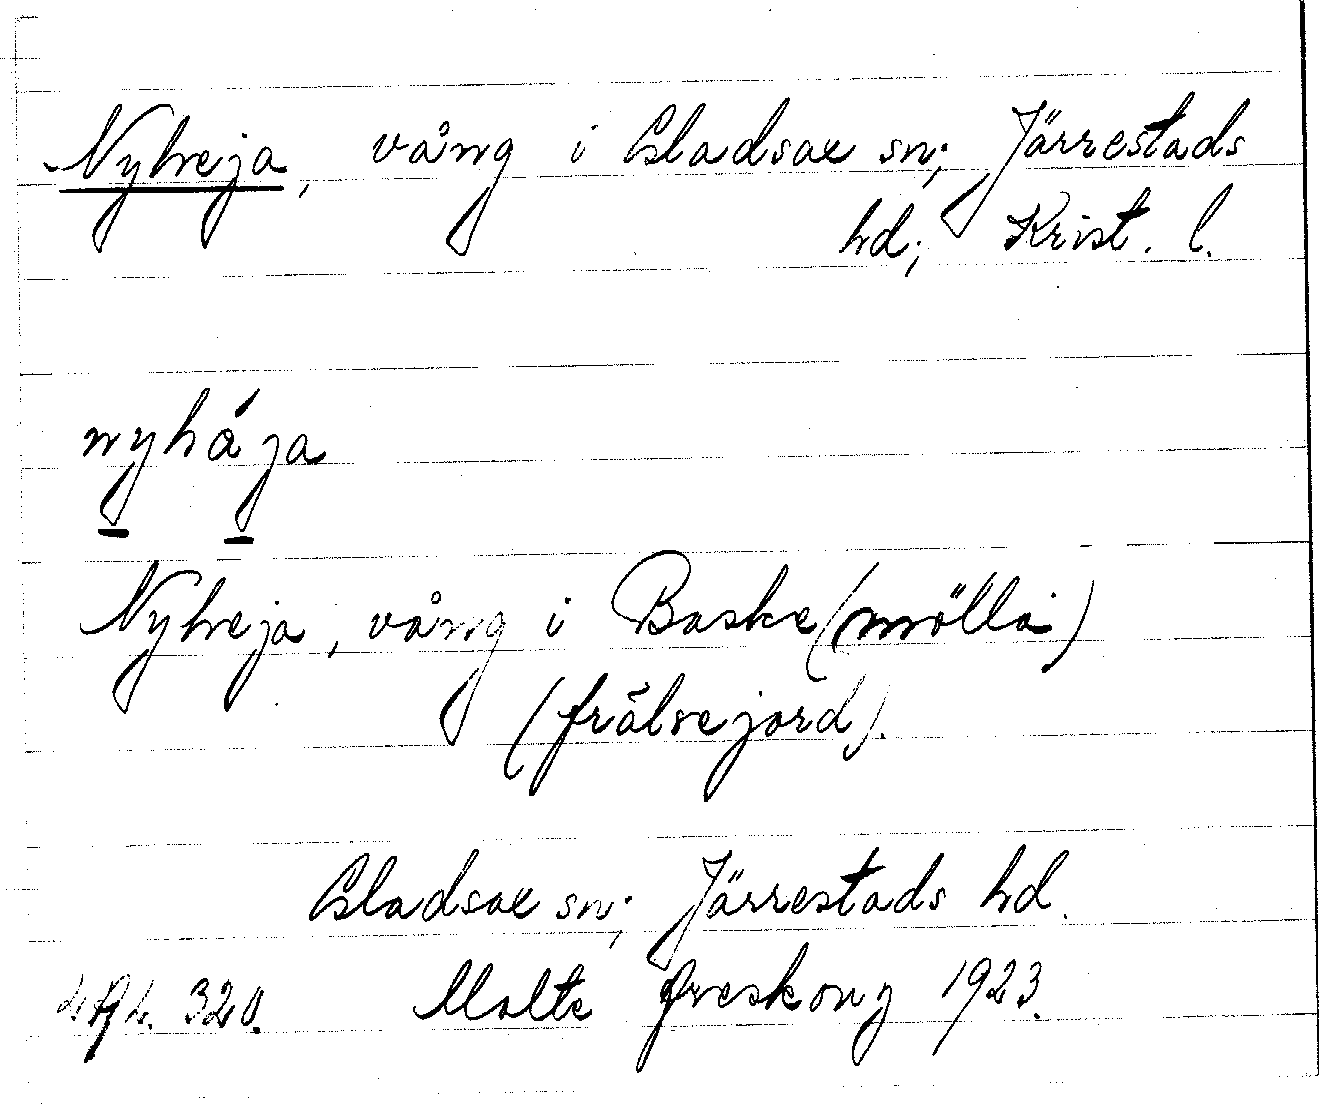 Nyheja, vång i Gladsax sn; Järrestads
hd; Krist. l.
nyhája
Nyheja, vång i Baske (mölla)
(frälsejord).
Gladsax sn; Järrestads hd.
320. Malte 1923.